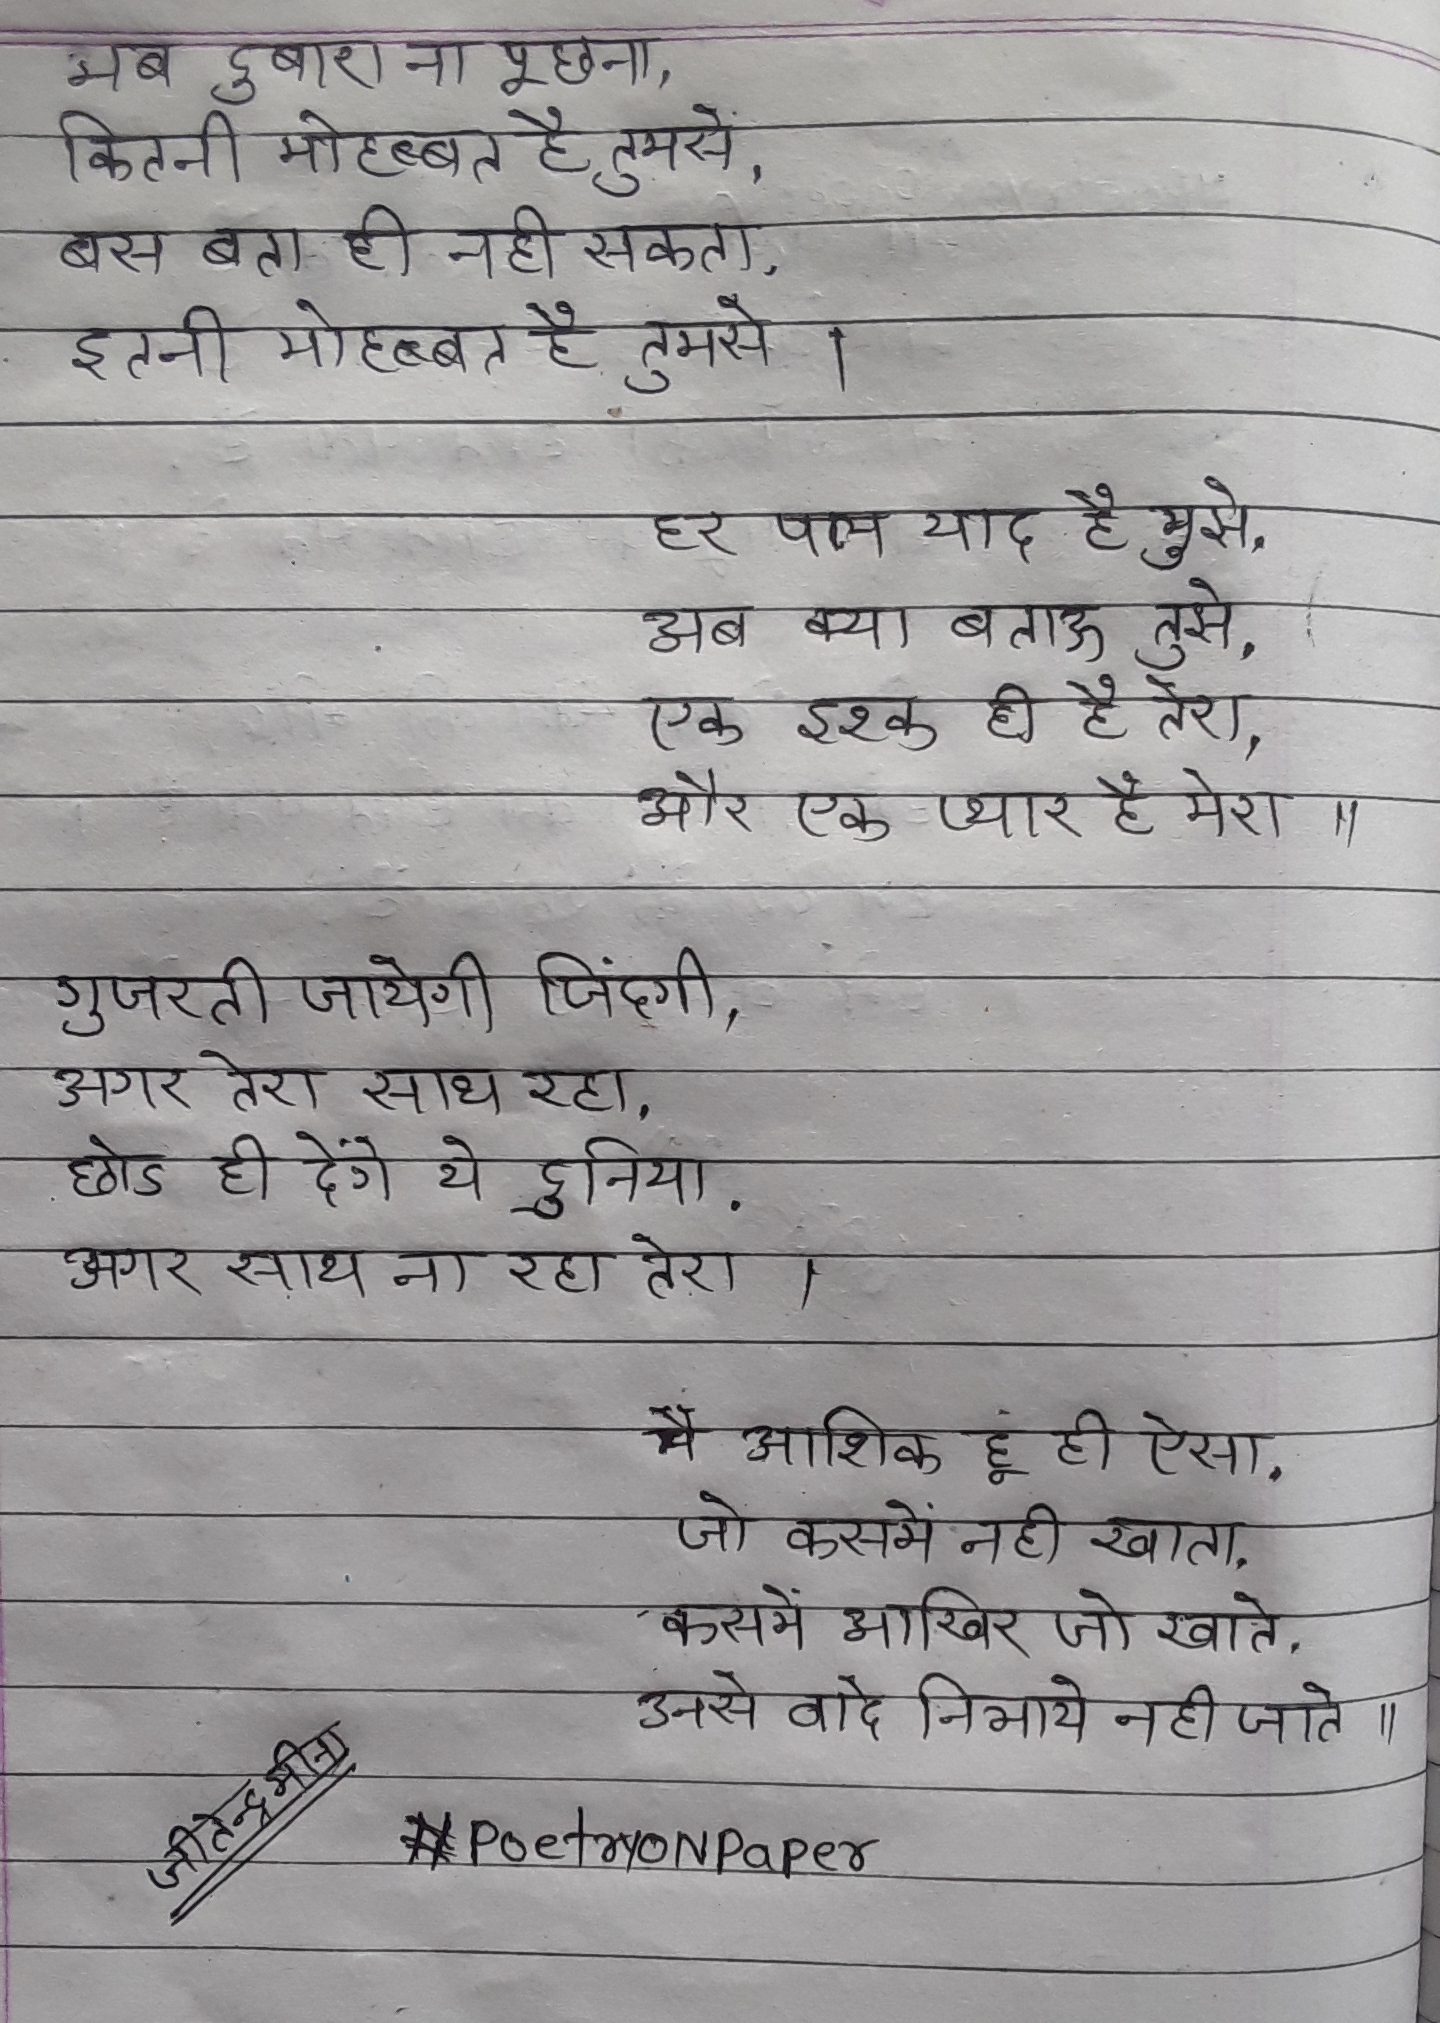 अब दुबारा ना पूछना,
कितनी मोहब्बत है तुमसे,
बस बता ही नही सकता,
इतनी मोहब्बत है तुमसे ।
हर पल याद है मुझे,
अब क्या बताऊ तुझे,
एक इश्क ही है तेरा,
और एक प्यार है मेरा ॥
गुजरती जायेगी जिंदगी,
अगर तेरा साथ रहा,
छोड ही देंगे ये दुनिया,
अगर साथ ना रहा तेरा ।
मै आशिक हूं ही ऐसा,
जो कसमें नही खाता,
कसमें आखिर जो खाते,
उनसे वादे निभाये नही जाते ॥
जीतेन्द्र मीना
#PoetryONPaper